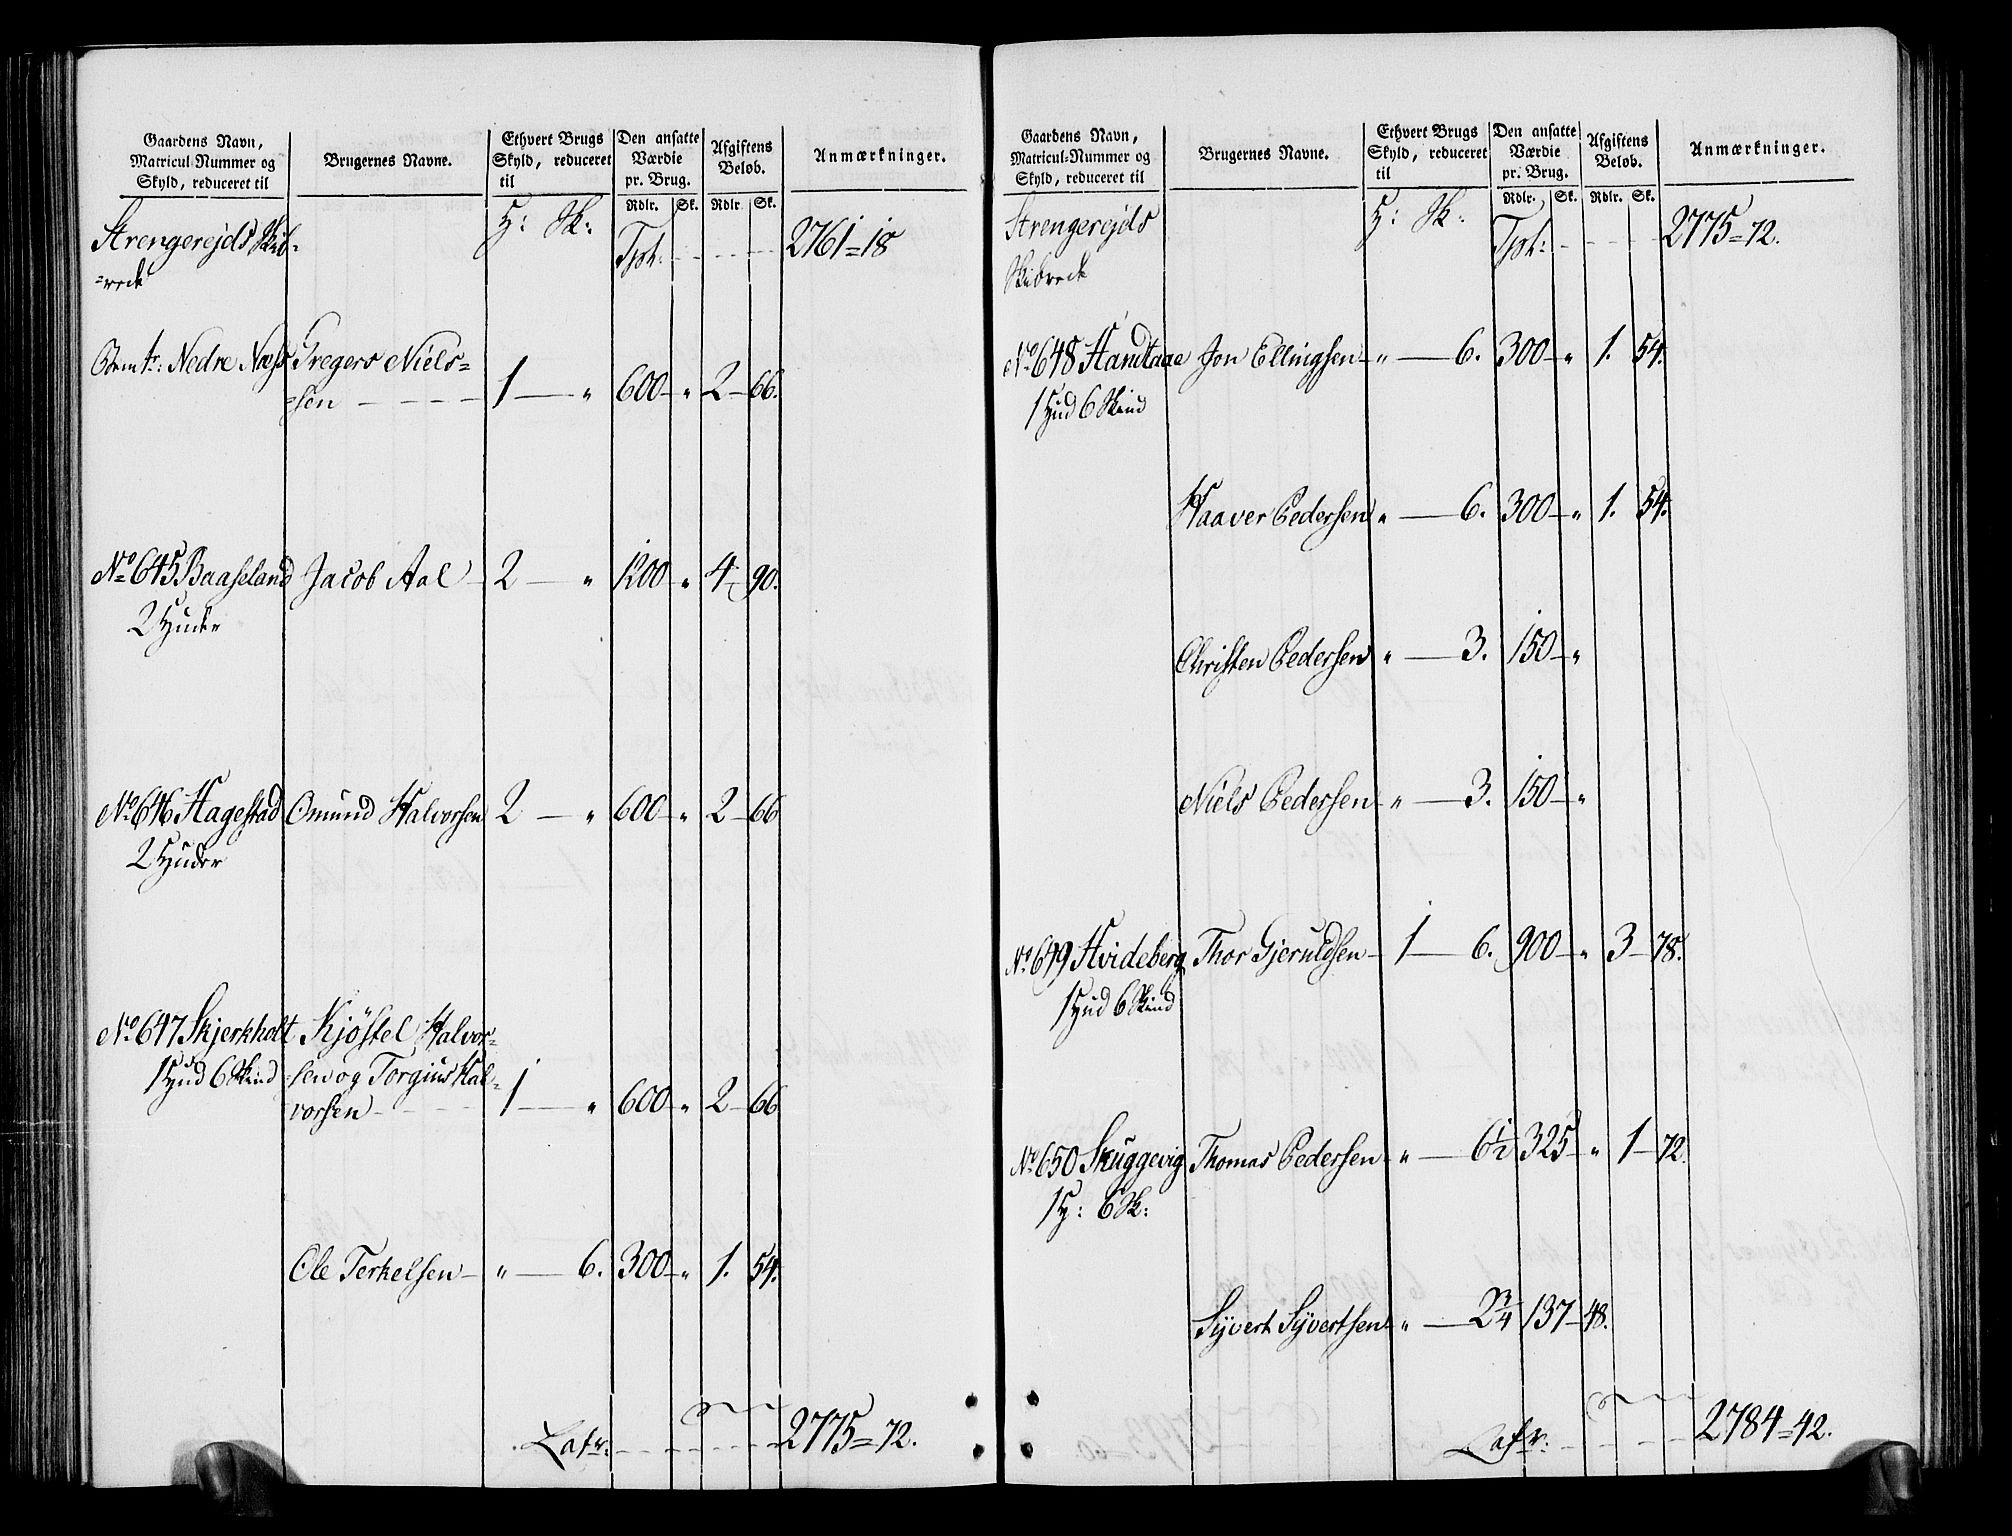 Gaardens Navn, Matricul-Nummer og Skyld, reduceret til
Brugernes Navne.
Ethvert Brugs Skyld, reduceret til
Den ansatte Værdie pr. Brug.
Afgiftens Beløb.
Anmærkninger.
Rdlr. Sk. Rdlr. Sk.
Strengerejds Skib= H: Sk: Tpt: 2761=18
=rede
Nedre Næss Gregers Niels=
=sen 1 — " 600 — " 2 — 66.
No 645 Baaseland Jacob Aal 2 — " 1200 — " 4 90.
2 Huder
No 646 Hagestad Omund Halvorsen 2 — " 600 — " 2 — 66
2 Huder
No 647 Skjerkholt Kjöstel Halvor=
1 Hud 6 Skind =sen og Torgius Hal=
vorsen 1 — " 600 — " 2 — 66
Ole Terkelsen — " — 6. 300 — " 1. 54.
Latr: 2775=72.
Gaardens Navn, Matricul-Nummer og Skyld, reduceret til
Brugernes Navne.
Ethvert Brugs Skyld, reduceret til
Den ansatte Værdie pr. Brug.
Afgiftens Beløb.
Anmærkninger.
Rdlr. Sk. Rdlr. Sk.
Strengerejds H: Sk: Tpt: 2775=72.
Skibrede
No 648 Handtaae Jon Ellingsen — " — 6. 300 — " 1. 54.
1 Hud 6 Skind
Haaver Pedersen " — 6. 300 — " 1. 54.
Christen Pedersen " — 3. 150 — "
Niels Pedersen — " — 3. 150 — "
No 649 Hvideberg Thor Gjeruldsen — 1 — 6. 900 — " 3 — 78.
1 Hud 6 Skind
No 650 Skuggevig Thomas Pedersen — " — 6½ 325 — " 1 — 72.
1 H: 6 Sk:
Syvert Syvertsen " — 2¾ 137 — 48.
Latr: 2784=42.